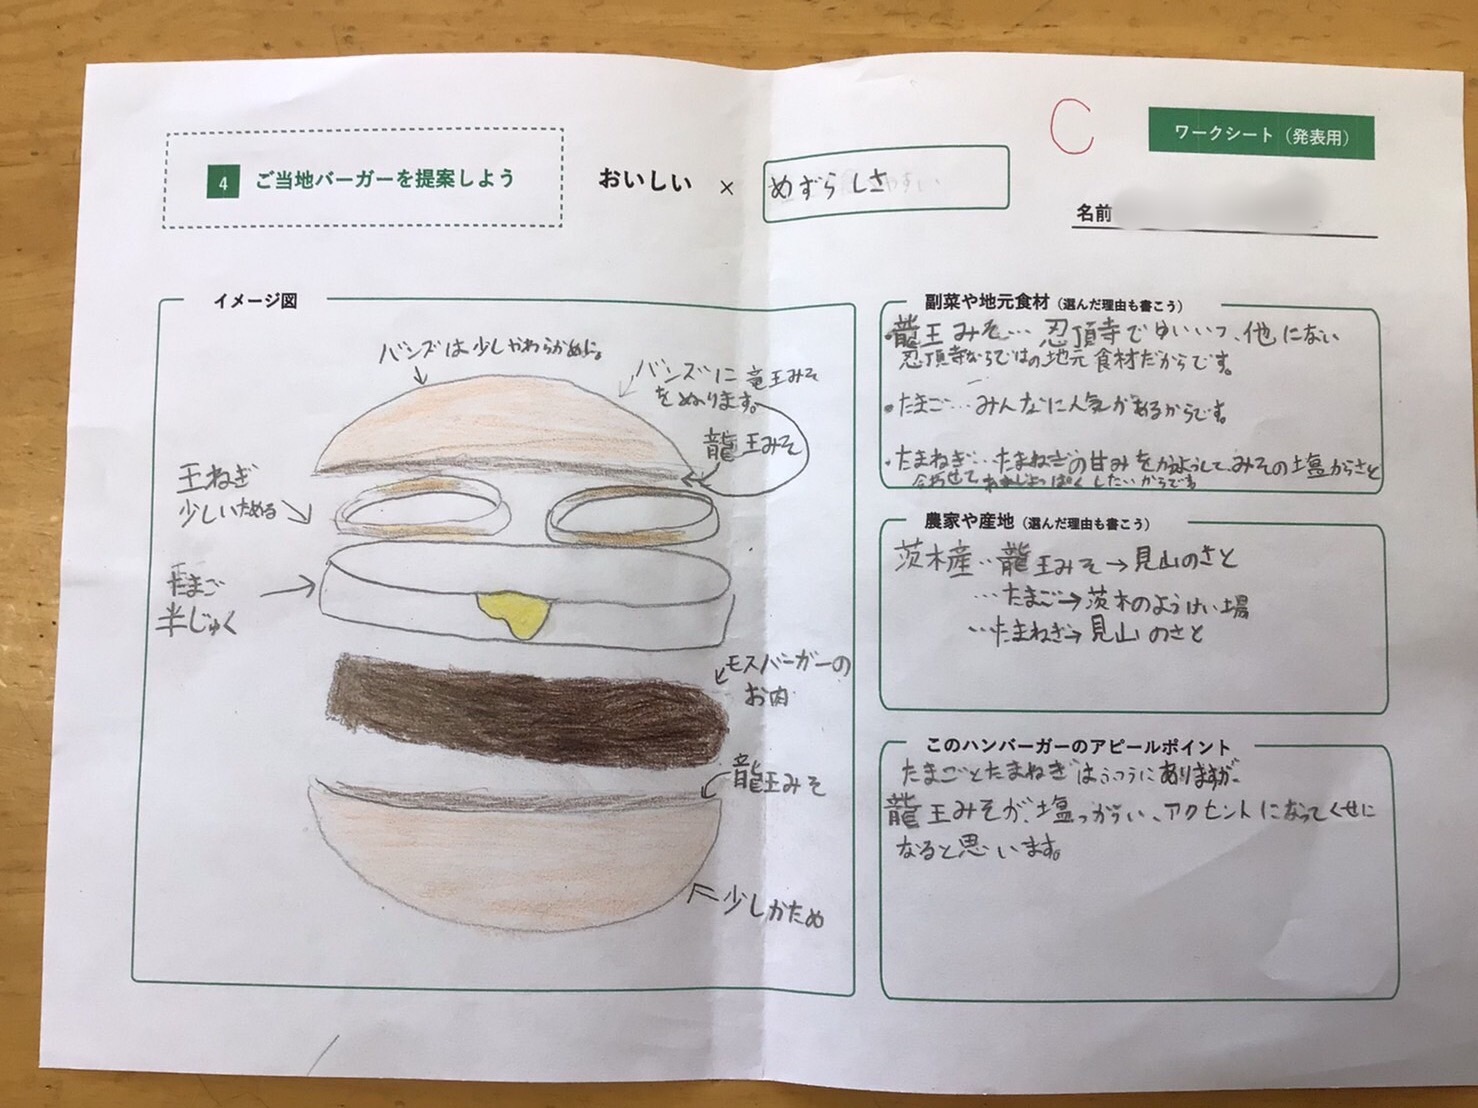 C
ワークシート（発表用）
4 ご当地バーガーを提案しよう
おいしい × めずらしさ
名前
イメージ図
バンズは少しやわらかめに。
バンズに竜王みそ
をぬります。
龍王みそ
玉ねぎ
少しいためる
たまご
半じゅく
モスバーガーの
お肉
龍王みそ
少しかため
副菜や地元食材（選んだ理由も書こう）
・龍王みそ…忍頂寺でゆいいつ、他にない
忍頂寺ならではの地元食材だからです。
・たまご…みんなに人気があるからです。
・たまねぎ…たまねぎの甘みをかつようして、みその塩からさと
合わせてあまじょっぱくしたいからです
農家や産地（選んだ理由も書こう）
茨木産…龍王みそ→見山のさと
…たまご→茨木のようけい場
…たまねぎ→見山のさと
このハンバーガーのアピールポイント
たまごとたまねぎはふつうにありますが、
龍王みそが、塩っからい、アクセントになってくせに
なると思います。